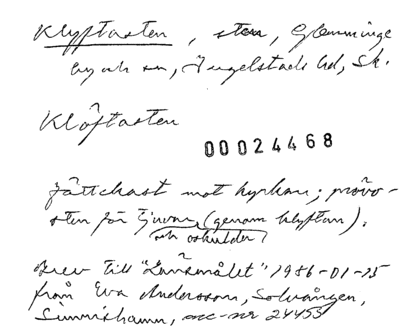 Klyftasten, sten, Glemminge
by och sn, Ingelstads hd, Sk.
Klöftasten
00024468
Jättekast mot kyrkan; prövo-
sten för tjuvar (genom klyftan).
och oskulder
Brev till "Länsmålet" 1986-01-15
från Eva Andersson, Solvången,
Simrishamn, acc-nr 24455